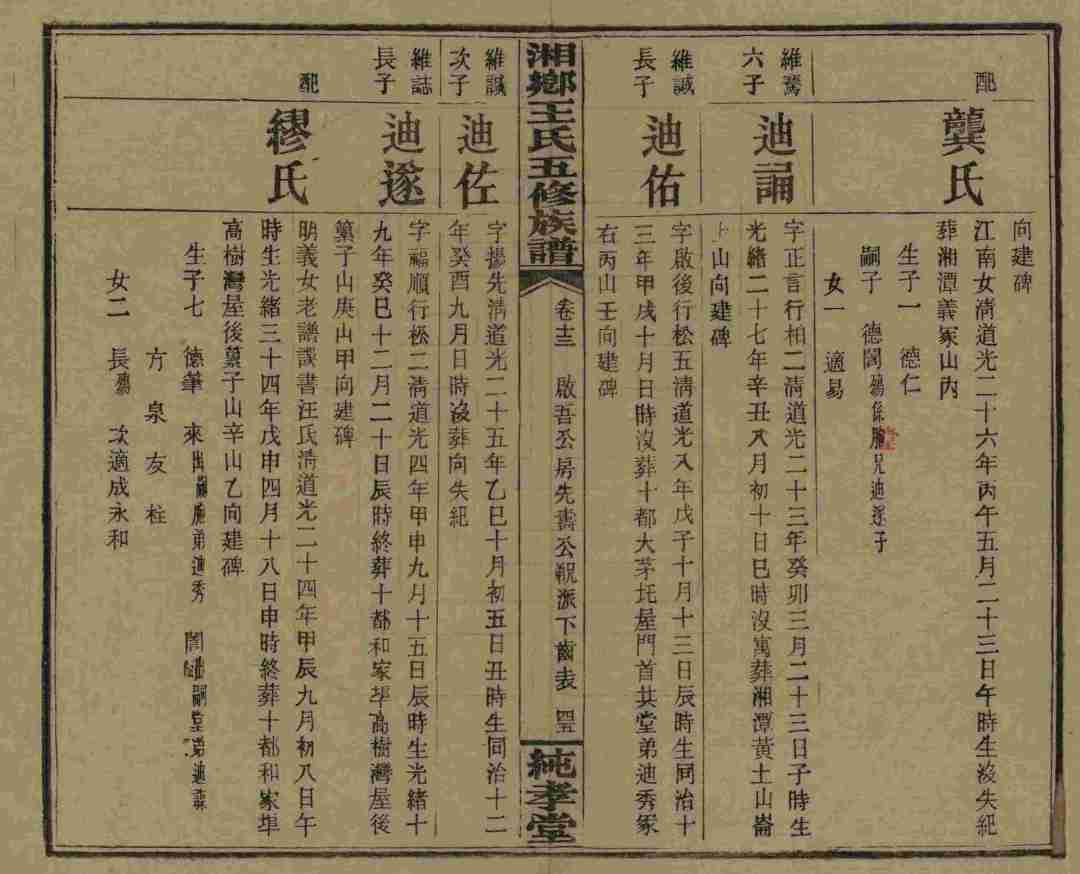 配
龔氏
向建碑
江南女淸道光二十六年丙午五月二十三日午時生沒失紀
葬湘潭義冢山內
生子一　德仁
嗣子　德閭殤係胞兄迪遂子
女一　適易
維鸞
六子
迪誦
字正言行相二淸道光二十三年癸卯三月二十三日子時生
光緒二十七年辛丑八月初十日巳時沒寓葬湘潭黃土山崙
上山向建碑
維誠
長子
迪佑
字啟後行松五淸道光八年戊子十月十三日辰時生同治十
三年甲戌十月日時沒葬十都大茅圫屋門首共堂弟迪秀冢
右丙山壬向建碑
湘鄉王氏五修族譜
卷十三　啟吾公房先壽公貺派下齒表
純孝堂
維誠
次子
迪佐
字揚先淸道光二十五年乙巳十月初五日丑時生同治十二
年癸酉九月日時沒葬向失紀
維誌
長子
迪遂
字福順行松二淸道光四年甲申九月十五日辰時生光緒十
九年癸巳十二月二十日辰時終葬十都和家埠高樹灣屋後
菓子山庚山甲向建碑
配
繆氏
明義女老譜誤書汪氏淸道光二十四年甲辰九月初八日午
時生光緒三十四年戊申四月十八日申時終葬十都和家埠
高樹灣屋後菓子山辛山乙向建碑
生子七　德肇　來出嗣胞弟迪秀　閭出嗣堂弟迪誦
方　泉　友　柱
女二　長殤　次適成永和